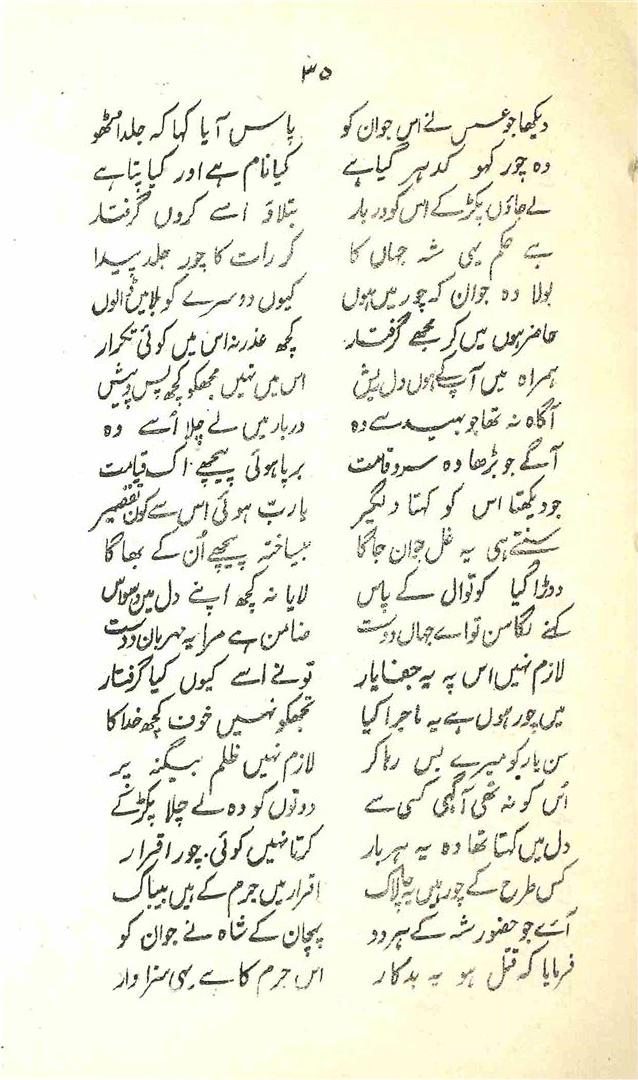 ۳۵
دیکھا جو عسس نے اس جوان کو پاس آیا کہا کہ جلد اٹھو
وہ چور کہو کدہر گیا ہے کیا نام ہے اور کیا پتا ہے
لے جاؤں پکڑ کے اس کو دربار بتلاؤ اسے کروں گرفتار
ہے حکم یہی شہ جہاں کا کر رات کا چور جلد پیدا
بولا وہ جوان کہ چور میں ہوں کیوں دوسرے کو بلا میں ڈالوں
حاضر ہوں میں کر مجھے گرفتار کچھ عذر نہ اس میں کوئی تکرار
ہمراہ میں آپکے ہوں دل ریش اس میں نہیں مجھکو کچھ پس و پیش
آگاہ نہ تھا جو بھید سے وہ دربار میں لے چلا اُسے وہ
آگے جو بڑھا وہ سرو قامت برپا ہوئی پیچھے اک قیامت
جو دیکھتا اس کو کہتا دلگیر یارب ہوئی اس سے کون تقصیر
سنتے ہی یہ غل جوان جاگا بیساختہ پیچھے اُن کے بھاگا
دوڑا گیا کوتوال کے پاس لایا نہ کچھ اپنے دل میں وسواس
کہنے لگا سن تو اے جہاں دوست ضامن ہے مرا یہ مہربان دوست
لازم نہیں اس پہ یہ جفا یار تونے اسے کیوں کیا گرفتار
میں چور ہوں ہے یہ ماجرا کیا تجھکو نہیں خوف کچھ خدا کا
سن یار کو میرے بس رہا کر لازم نہیں ظلم بیگنہ پر
اُس کو نہ تھی آگہی کسی سے دونوں کو وہ لے چلا پکڑ کے
دل میں کہتا تھا وہ یہ ہر بار کرتا نہیں کوئی چور اقرار
کس طرح کے چور ہیں یہ چالاک اقرار میں جرم کے ہیں بیباک
آئے جو حضور شہ کے ہر دو پہچان کے شاہ نے جوان کو
فرمایا کہ قتل ہو یہ بدکار اس جرم کا ہے یہی سزاوار